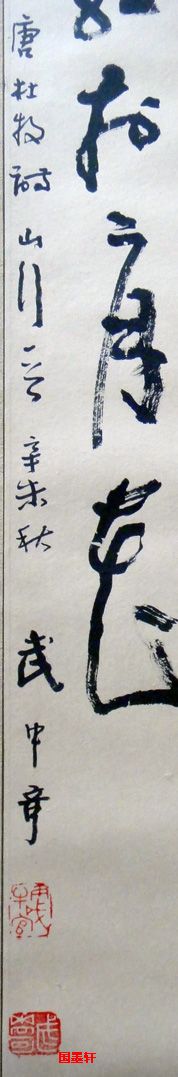 红於二月花
唐杜牧诗山行一首 辛未秋
武中奇
国墨轩